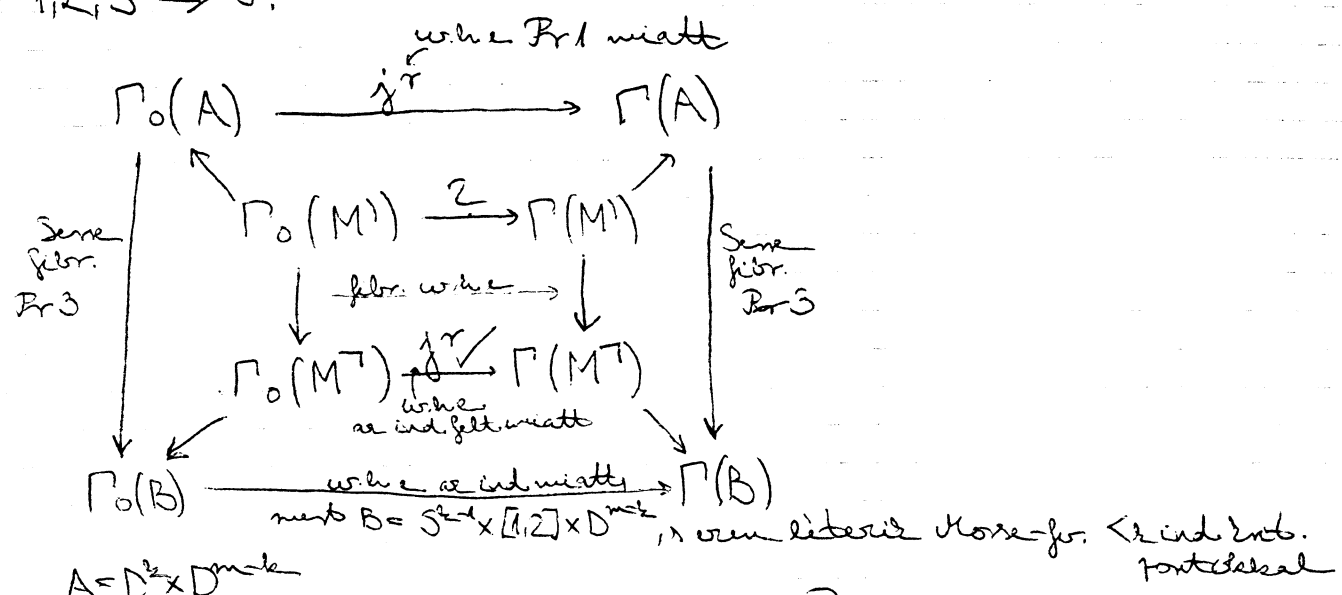 1,2,3 → 0.
w.h.e Pr 1 miatt
Γ₀(A) j^r → Γ(A)
Γ₀(M') 2 → Γ(M')
Serre
fibr.
Pr 3
Serre
fibr.
Pr 3
fibr. w.h.e
Γ₀(M⌝) j^r ✓ → Γ(M⌝)
w.h.e
az ind. felt. miatt
Γ₀(B) w.h.e az ind miatt → Γ(B)
mert B = S^{k-1} × [1,2] × D^{m-k}, ezen létezik Morse-fv. <k ind krit.
pontokkal
A = D^k × D^{m-k}